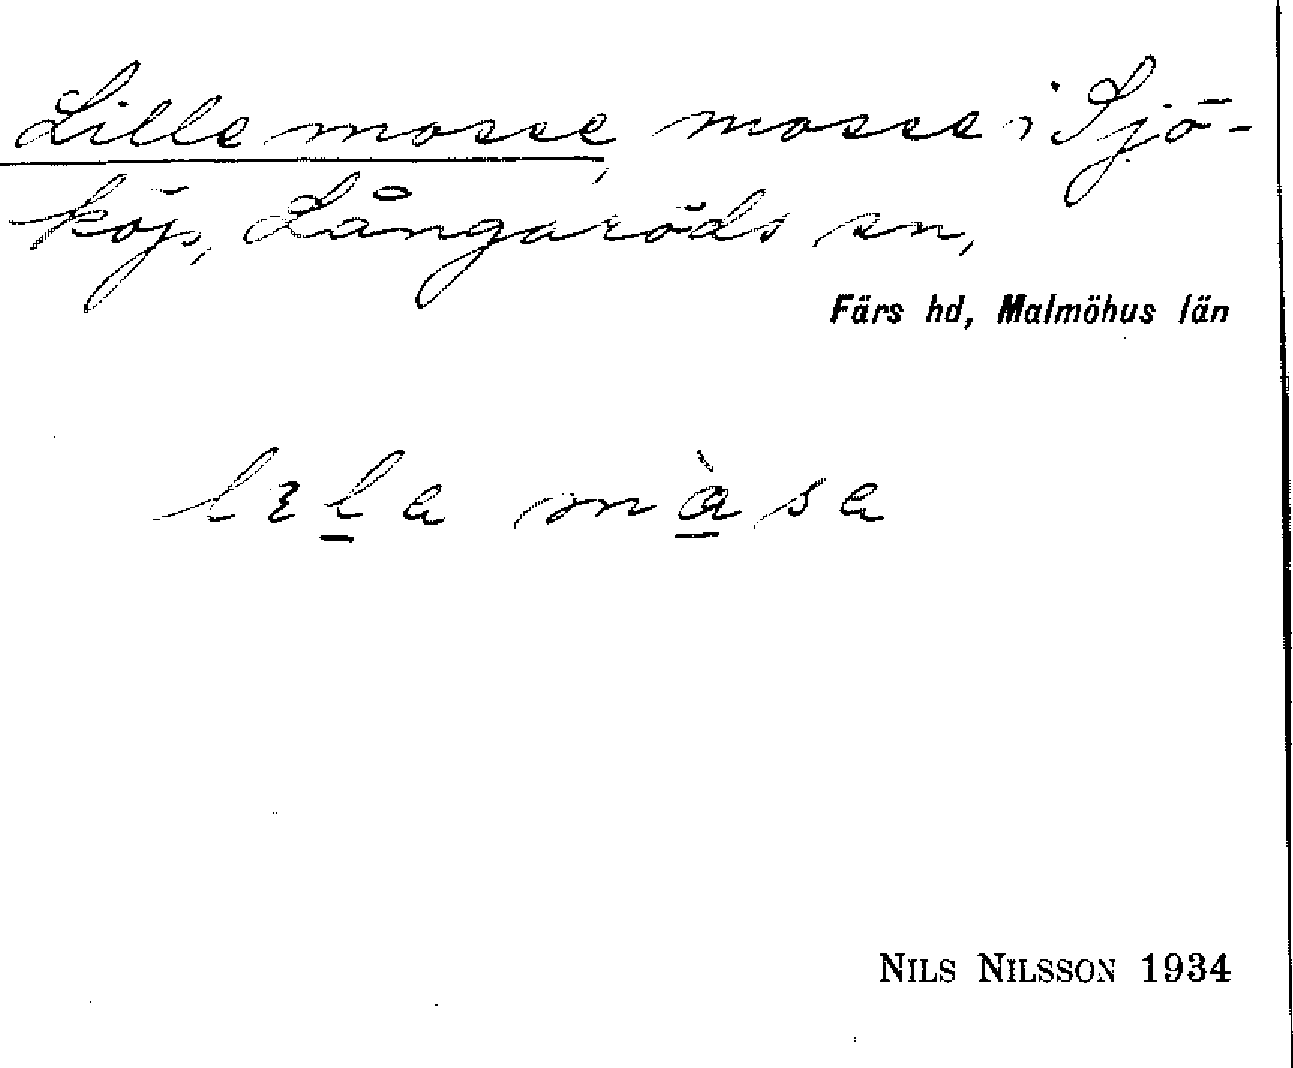 Lille mosse, mosse i Sjö-
köp, Långaröds sn,
Färs hd, Malmöhus län
lɛl̲a mà̲sa
NILS NILSSON 1934